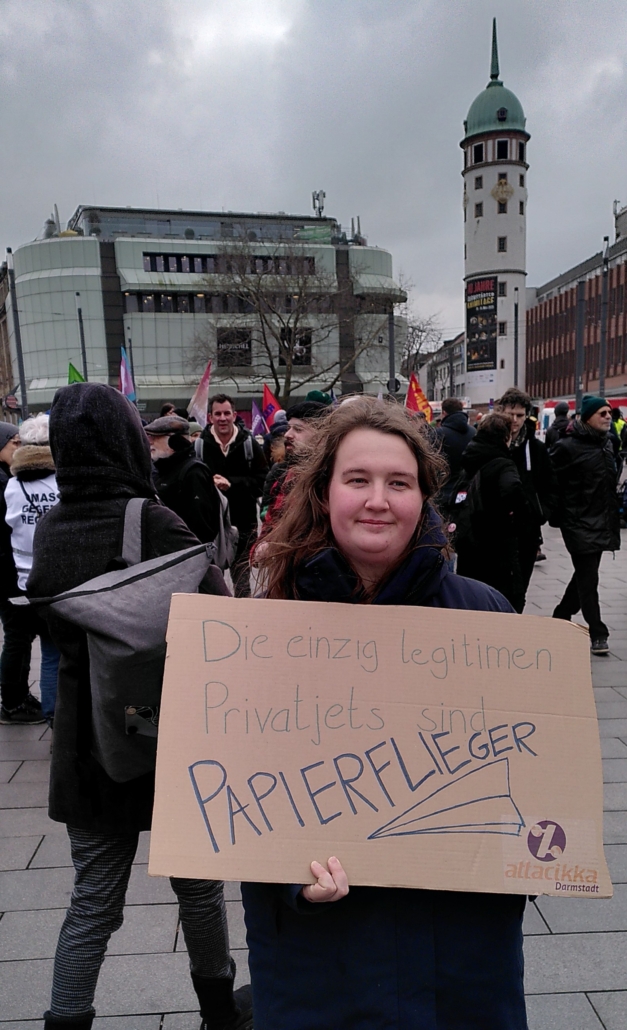 Die einzig legitimen
Privatjets sind
PAPIERFLIEGER
attacikka
Darmstadt
OMAS
GEGEN